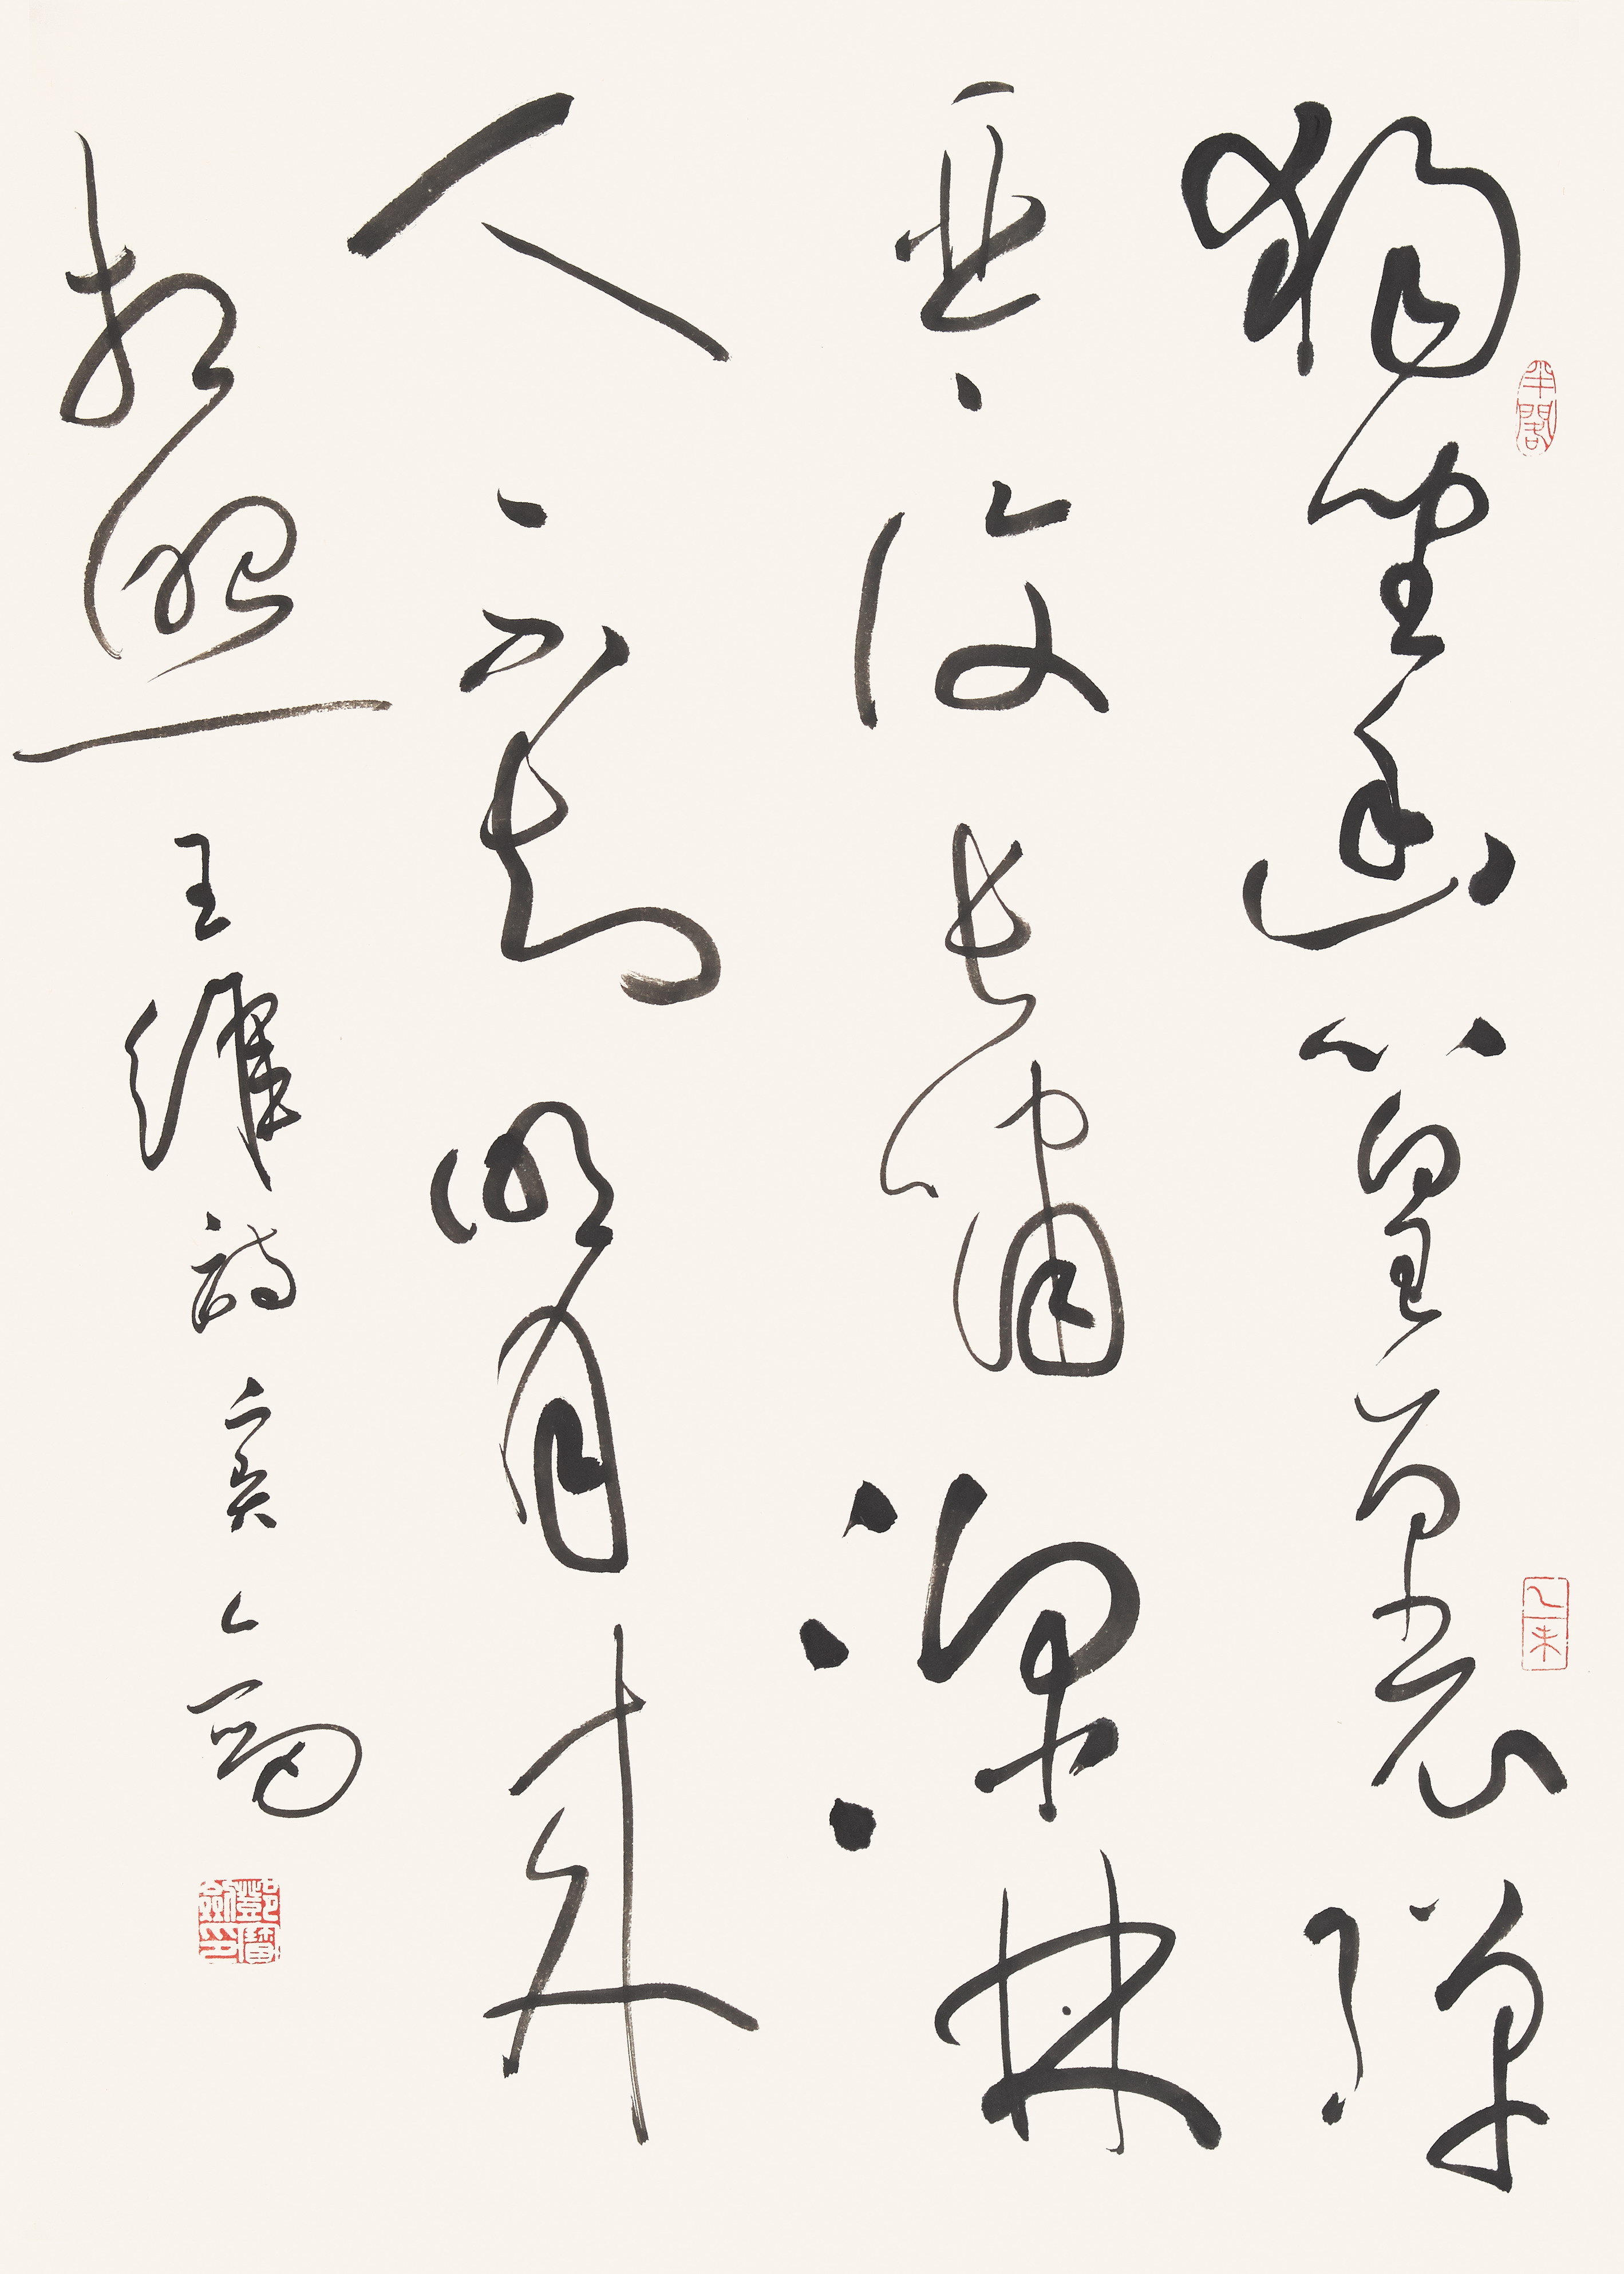 獨坐幽篁裏彈
琴復長嘯深林
人不知明月來
相照 王維詩 寶劍
乙未
鄧寶劍印